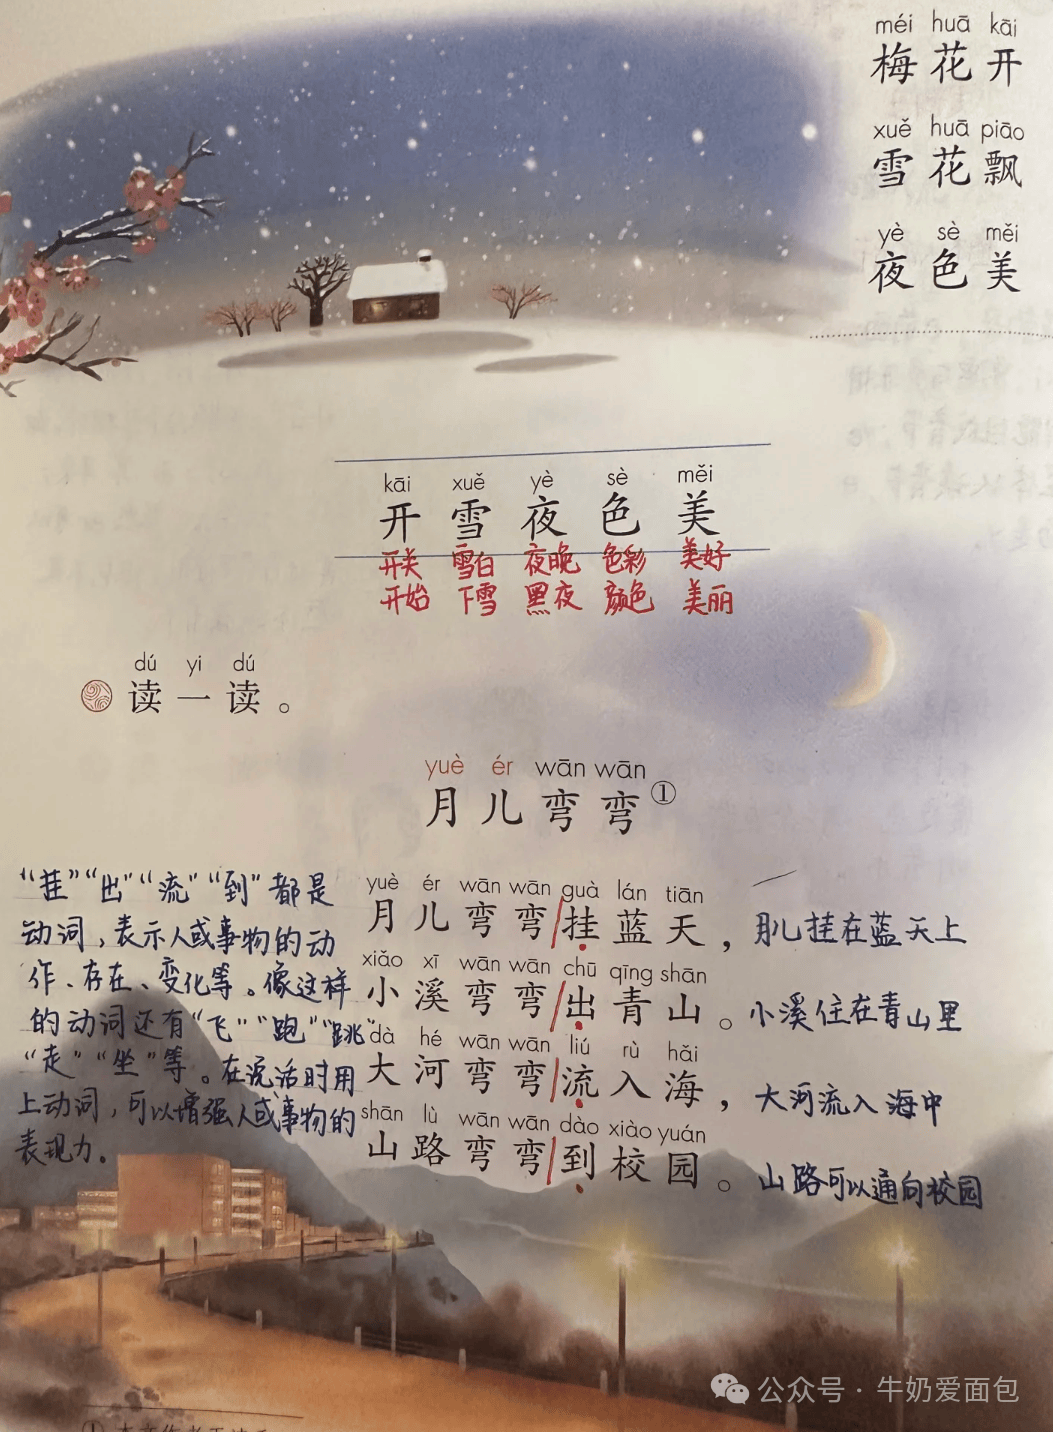 méi huā kāi
梅花开
xuě huā piāo
雪花飘
yè sè měi
夜色美
kāi xuě yè sè měi
开 雪 夜 色 美
开关 雪白 夜晚 色彩 美好
开始 下雪 黑夜 颜色 美丽
dú yi dú
读一读。
yuè ér wān wān
月儿弯弯①
“挂”“出”“流”“到”都是
动词,表示人或事物的动
作、存在、变化等。像这样
的动词还有“飞”“跑”“跳”
“走”“坐”等。在说话时用
上动词,可以增强人或事物的
表现力。
yuè ér wān wān guà lán tiān
月儿弯弯/挂蓝天,月儿挂在蓝天上
xiǎo xī wān wān chū qīng shān
小溪弯弯/出青山。小溪住在青山里
dà hé wān wān liú rù hǎi
大河弯弯/流入海,大河流入海中
shān lù wān wān dào xiào yuán
山路弯弯/到校园。山路可以通向校园
公众号·牛奶爱面包